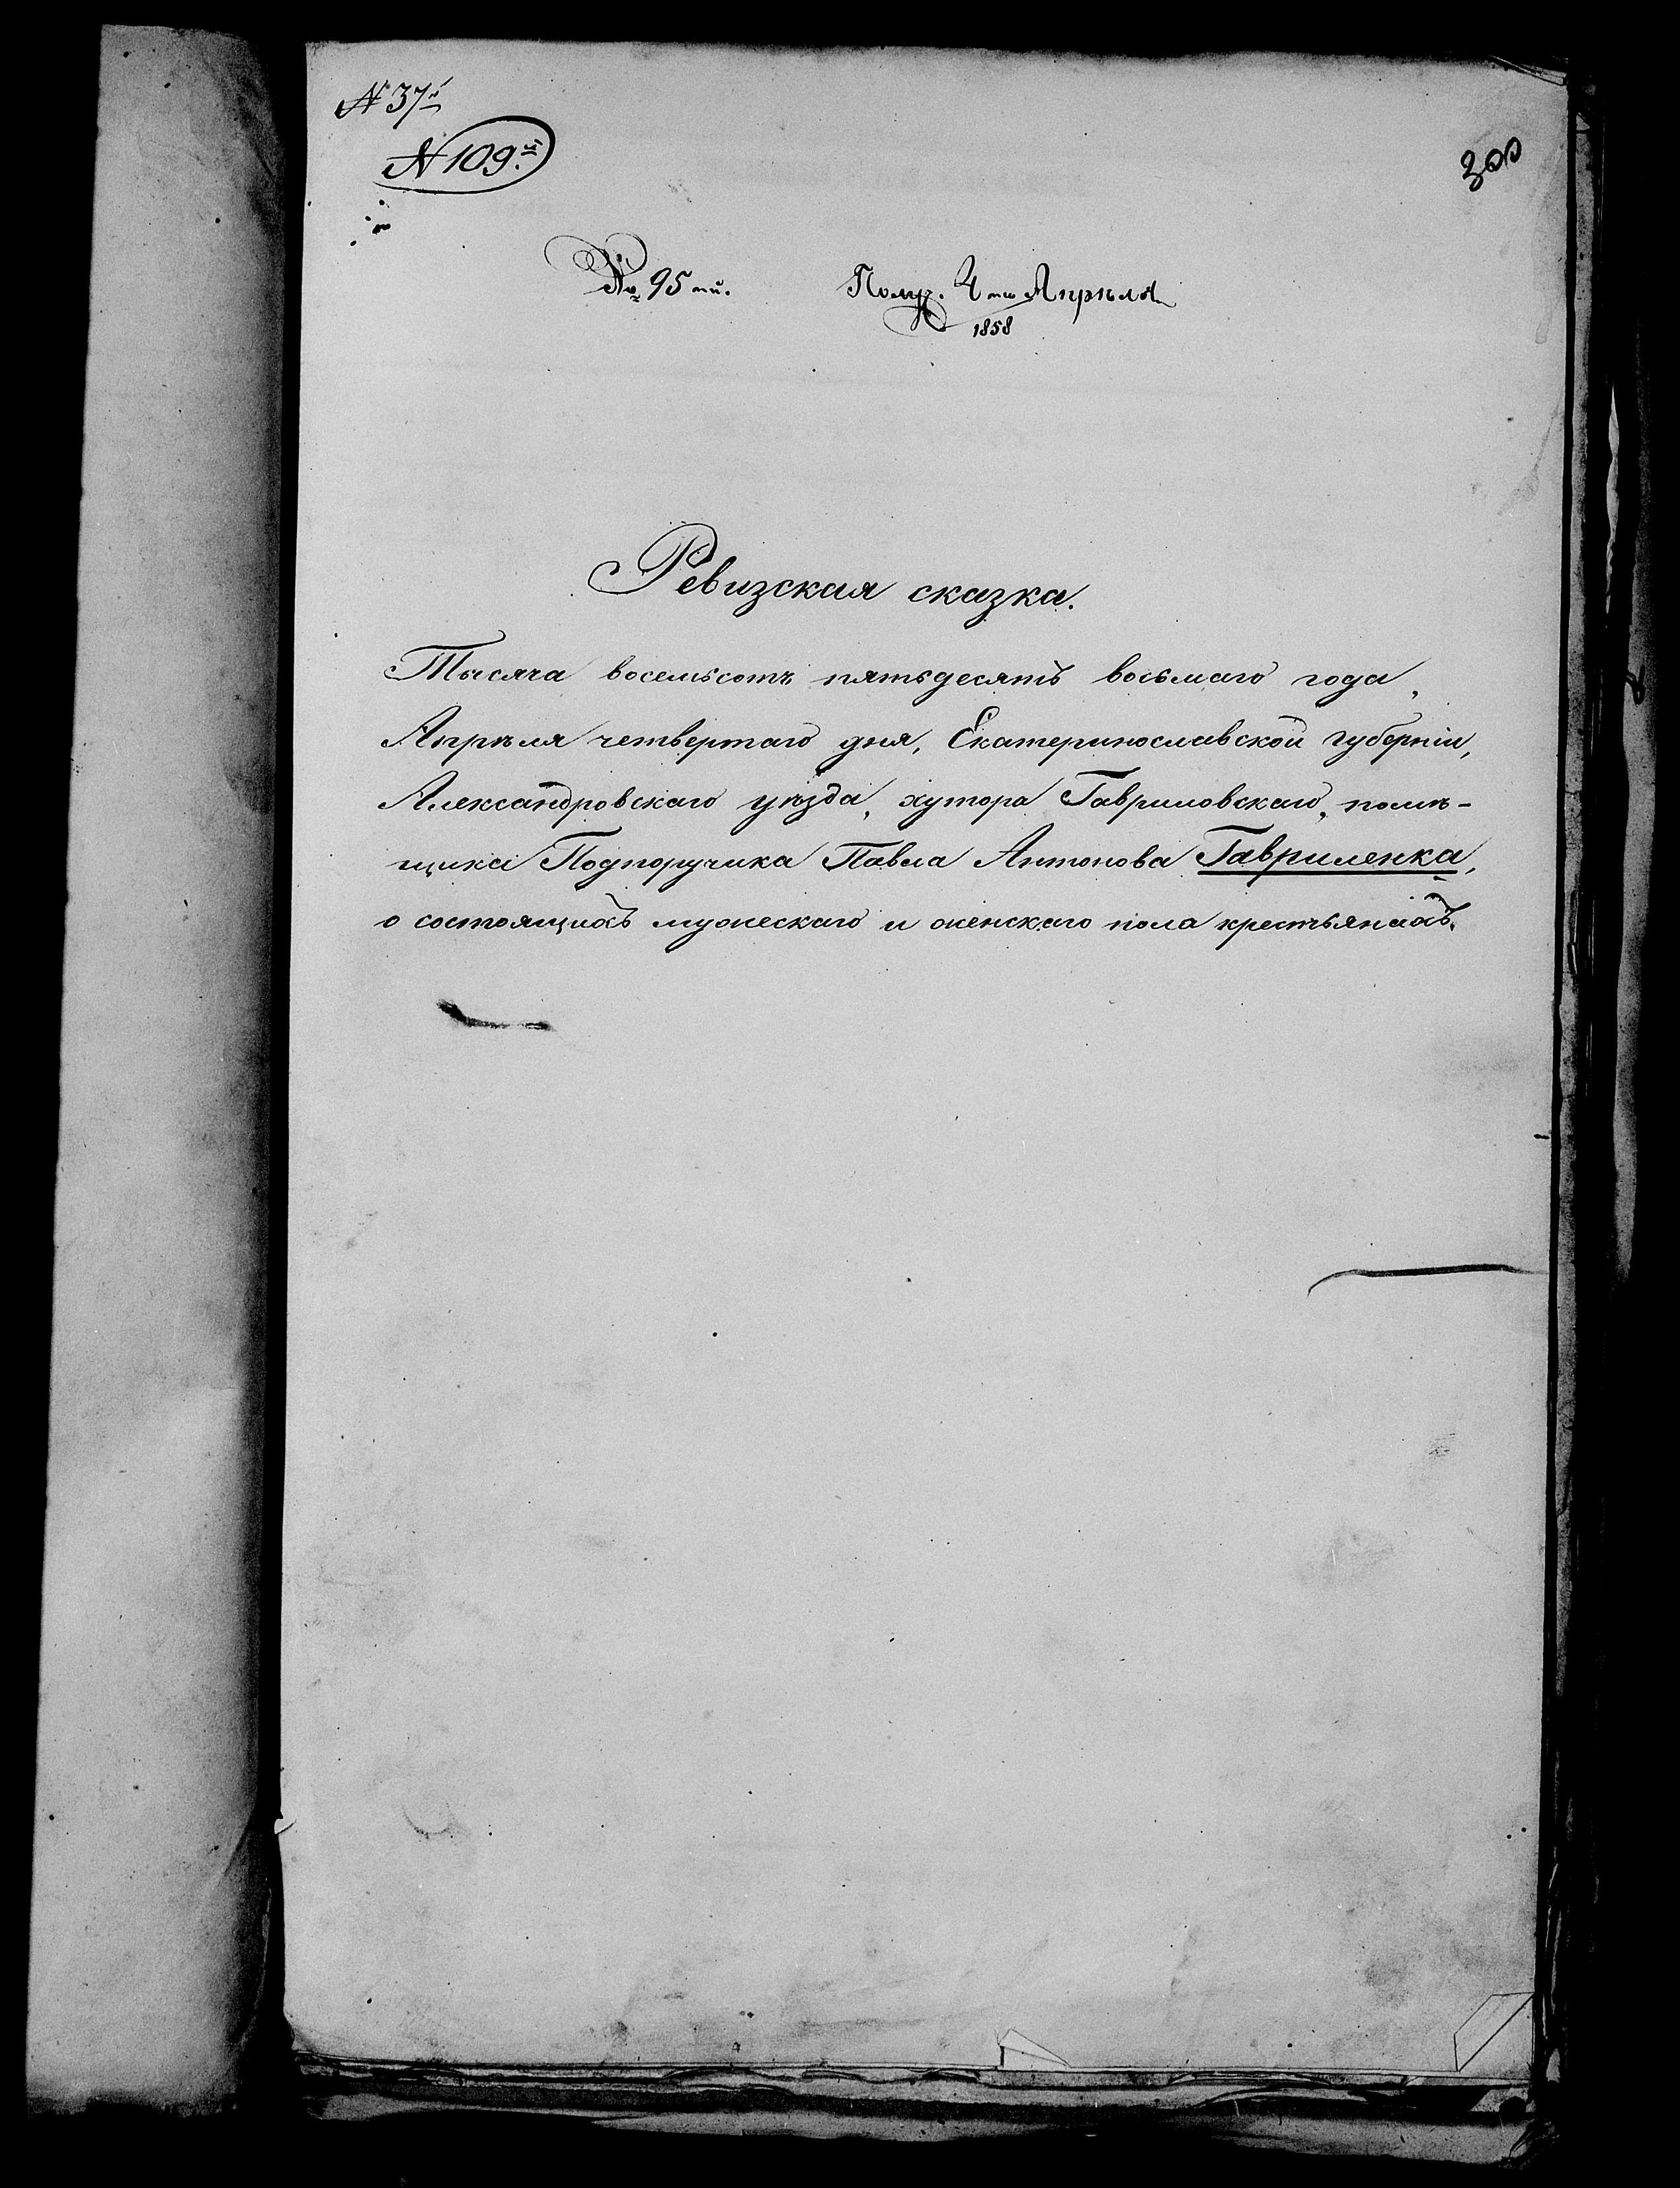 N 37й
N 109.й
300
№ 95 тй.
Получ. 4 го Апрѣля
1858
Ревизская сказка.
Тысяча восемьсотъ пятьдесятъ восьмаго года,
Апрѣля четвертаго дня, Екатеринославской губерніи,
Александровскаго уѣзда, хутора Гавриловскаго, помѣ-
щика Подпоручика Павла Антонова Гавриленка,
о состоящихъ мужескаго и женскаго пола крестьянахъ.